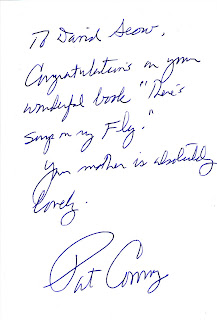 To David Seow,
Congratulations on your
wonderful book "There's
Soup on my Fly."
Your mother is absolutely
lovely.
Pat Conroy